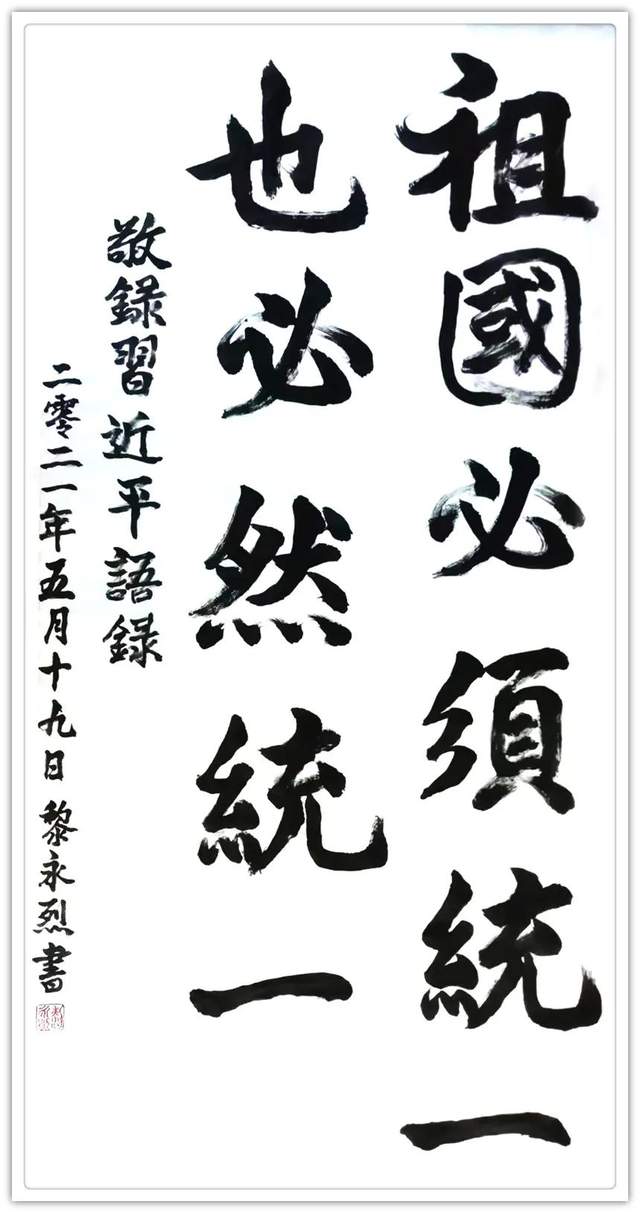 祖國必須統一
也必然統一
敬錄習近平語錄
二零二一年五月十九日黎永烈書